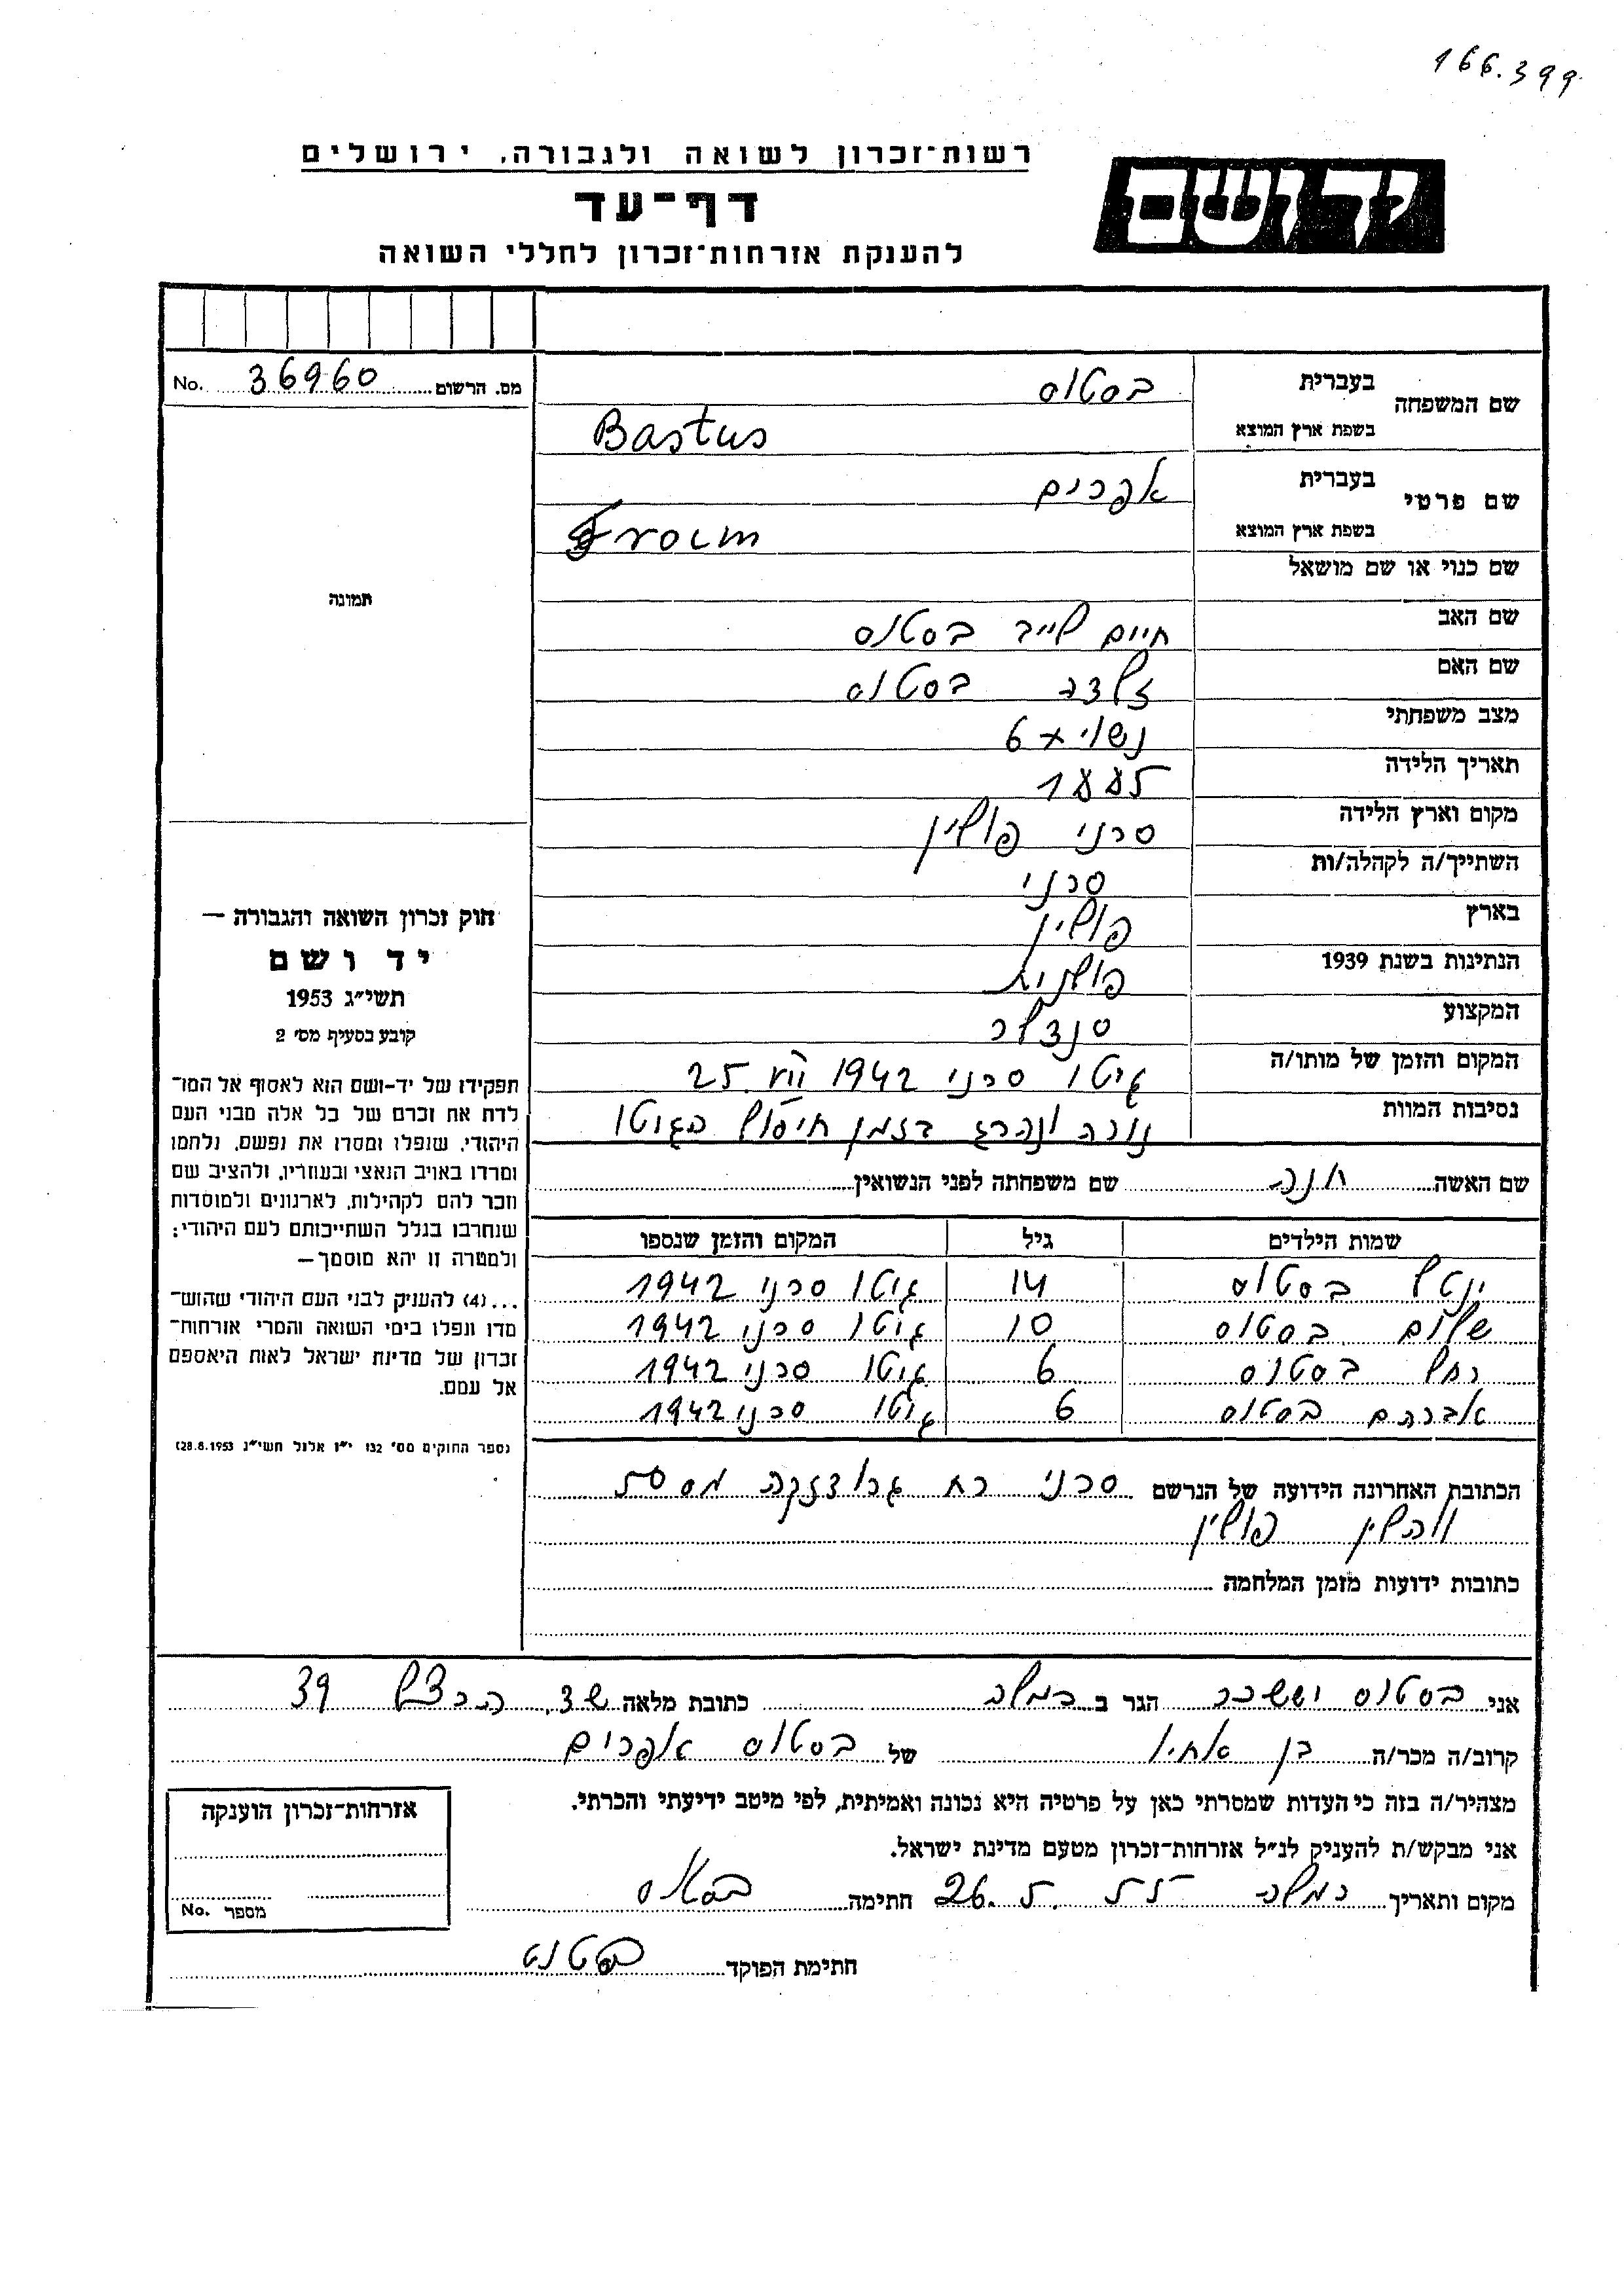 166.399
רשות־זכרון לשואה ולגבורה, ירושלים
יד ושם
דף־עד
להענקת אזרחות־זכרון לחללי השואה
מס. הרשום 36960 No.
שם המשפחה בעברית בסטוס
בשפת ארץ המוצא Bastus
שם פרטי בעברית אפרים
בשפת ארץ המוצא Froim
שם כנוי או שם מושאל
שם האב חיים לייב בסטוס
שם האם זלדה בסטוס
מצב משפחתי נשוי 6 +
תאריך הלידה
מקום וארץ הלידה סרני פולין
השתייך/ה לקהלה/ות סרני
בארץ פולין
הנתינות בשנת 1939 פולנית
המקצוע סנדלר
המקום והזמן של מותו/ה גיטו סרני 1942 VII 25.
נסיבות המוות נורה ונהרג בזמן חיסול בגיטו
תמונה
חוק זכרון השואה והגבורה —
יד ושם
תשי״ג 1953
קובע בסעיף מס׳ 2
תפקידו של יד־ושם הוא לאסוף אל המו־
לדת את זכרם של כל אלה מבני העם
היהודי, שנפלו ומסרו את נפשם, נלחמו
ומרדו באויב הנאצי ובעוזריו, ולהציב שם
וזכר להם לקהילות, לארגונים ולמוסדות
שנחרבו בגלל השתייכותם לעם היהודי:
ולמטרה זו יהא מוסמך—
...(4) להעניק לבני העם היהודי שהוש־
מדו ונפלו בימי השואה והמרי אזרחות־
זכרון של מדינת ישראל לאות היאספם
אל עמם.
(ספר החוקים מס׳ 132 י״ז אלול תשי״ג 28.8.1953)
שם האשה חנה שם משפחתה לפני הנשואין
שמות הילדים גיל המקום והזמן שנספו
ינטל בסטוס 14 גיטו סרני 1942
שלום בסטוס 10 גיטו סרני 1942
רחל בסטוס 6 גיטו סרני 1942
אברהם בסטוס 6 גיטו סרני 1942
הכתובת האחרונה הידועה של הנרשם סרני רח
ווהלין פולין
כתובות ידועות מזמן המלחמה
אני בסטוס יששכר הגר ב רמלה כתובת מלאה שד. הרצל 39
קרוב/ה מכר/ה בן אחיו של בסטוס אפרים
מצהיר/ה בזה כי העדות שמסרתי כאן על פרטיה היא נכונה ואמיתית, לפי מיטב ידיעתי והכרתי.
אני מבקש/ת להעניק לנ״ל אזרחות־זכרון מטעם מדינת ישראל.
מקום ותאריך רמלה 26. חתימה
חתימת הפוקד
אזרחות־זכרון הוענקה
מספר No.